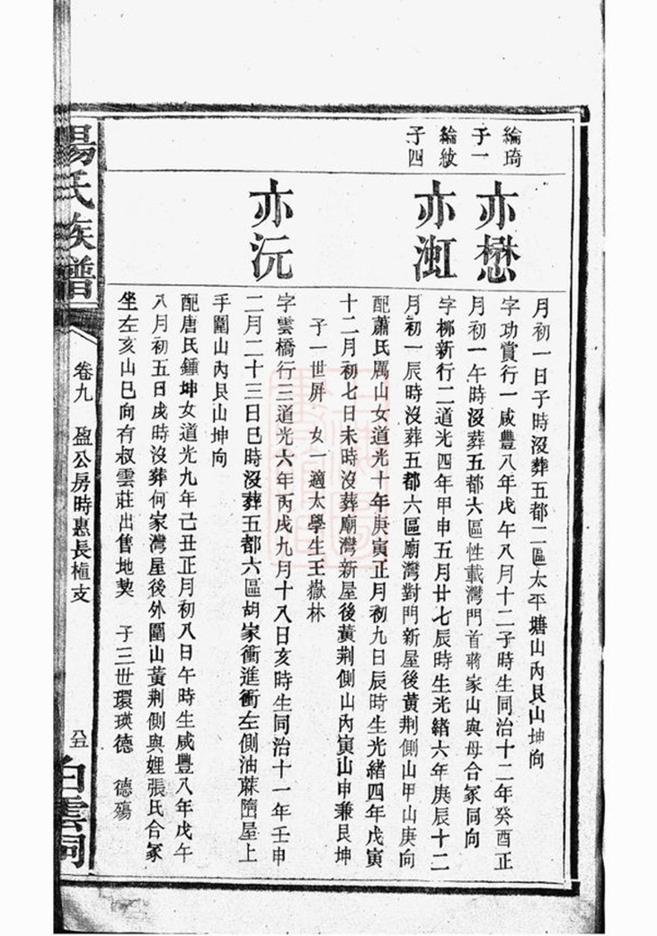 綸琦
子一
綸紋
子四
亦懋
亦𣵡
亦沅
月初一日子時沒葬五都二區太平塘山內艮山坤向
字功賞行一咸豐八年戊午八月十二子時生同治十二年癸酉正
月初一午時沒葬五都六區性載灣門首蔣家山與母合冢同向
字梛新行二道光四年甲申五月廿七辰時生光緒六年庚辰十二
月初一辰時沒葬五都六區廟灣對門新屋後黃荆側山甲山庚向
配蕭氏厲山女道光十年庚寅正月初九日辰時生光緒四年戊寅
十二月初七日未時沒葬廟灣新屋後黃荆側山內寅山申兼艮坤
子一世屏 女一適太學生王嶽林
字雲橋行三道光六年丙戌九月十八日亥時生同治十一年壬申
二月二十三日巳時沒葬五都六區胡家衝進衝左側油蔴隮屋上
手圍山內艮山坤向
配唐氏鍾坤女道光九年己丑正月初八日午時生咸豐八年戊午
八月初五日戌時沒葬何家灣屋後外圍山黃荆側與娌張氏合冢
坐左亥山巳向有叔雲莊出售地契 子三世環瑛德 德殤
楊氏族譜
卷九 盈公房時惠長植支
八五
白雲祠